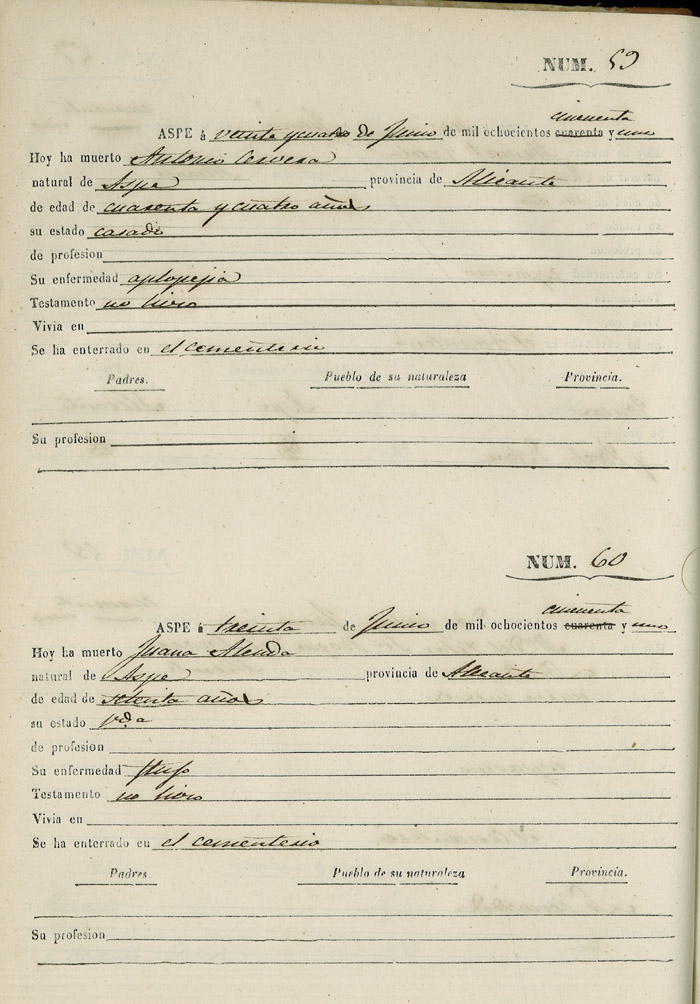 NUM. 59
cincuenta
ASPE á veinte y cuatro de Junio de mil ochocientos cuarenta y uno
Hoy ha muerto Antonio Cervera
natural de Aspe provincia de Alicante
de edad de cuarenta y cuatro años
su estado casado
de profesion
Su enfermedad aplopejia
Testamento no hizo
Vivia en
Se ha enterrado en el cementerio
Padres. Pueblo de su naturaleza Provincia.
Su profesion
NUM. 60
cincuenta
ASPE á treinta de Junio de mil ochocientos cuarenta y uno
Hoy ha muerto Juana Alenda
natural de Aspe provincia de Alicante
de edad de setenta años
su estado Vda
de profesion
Su enfermedad
Testamento no hizo
Vivia en
Se ha enterrado en el cementerio
Padres. Pueblo de su naturaleza Provincia.
Su profesion